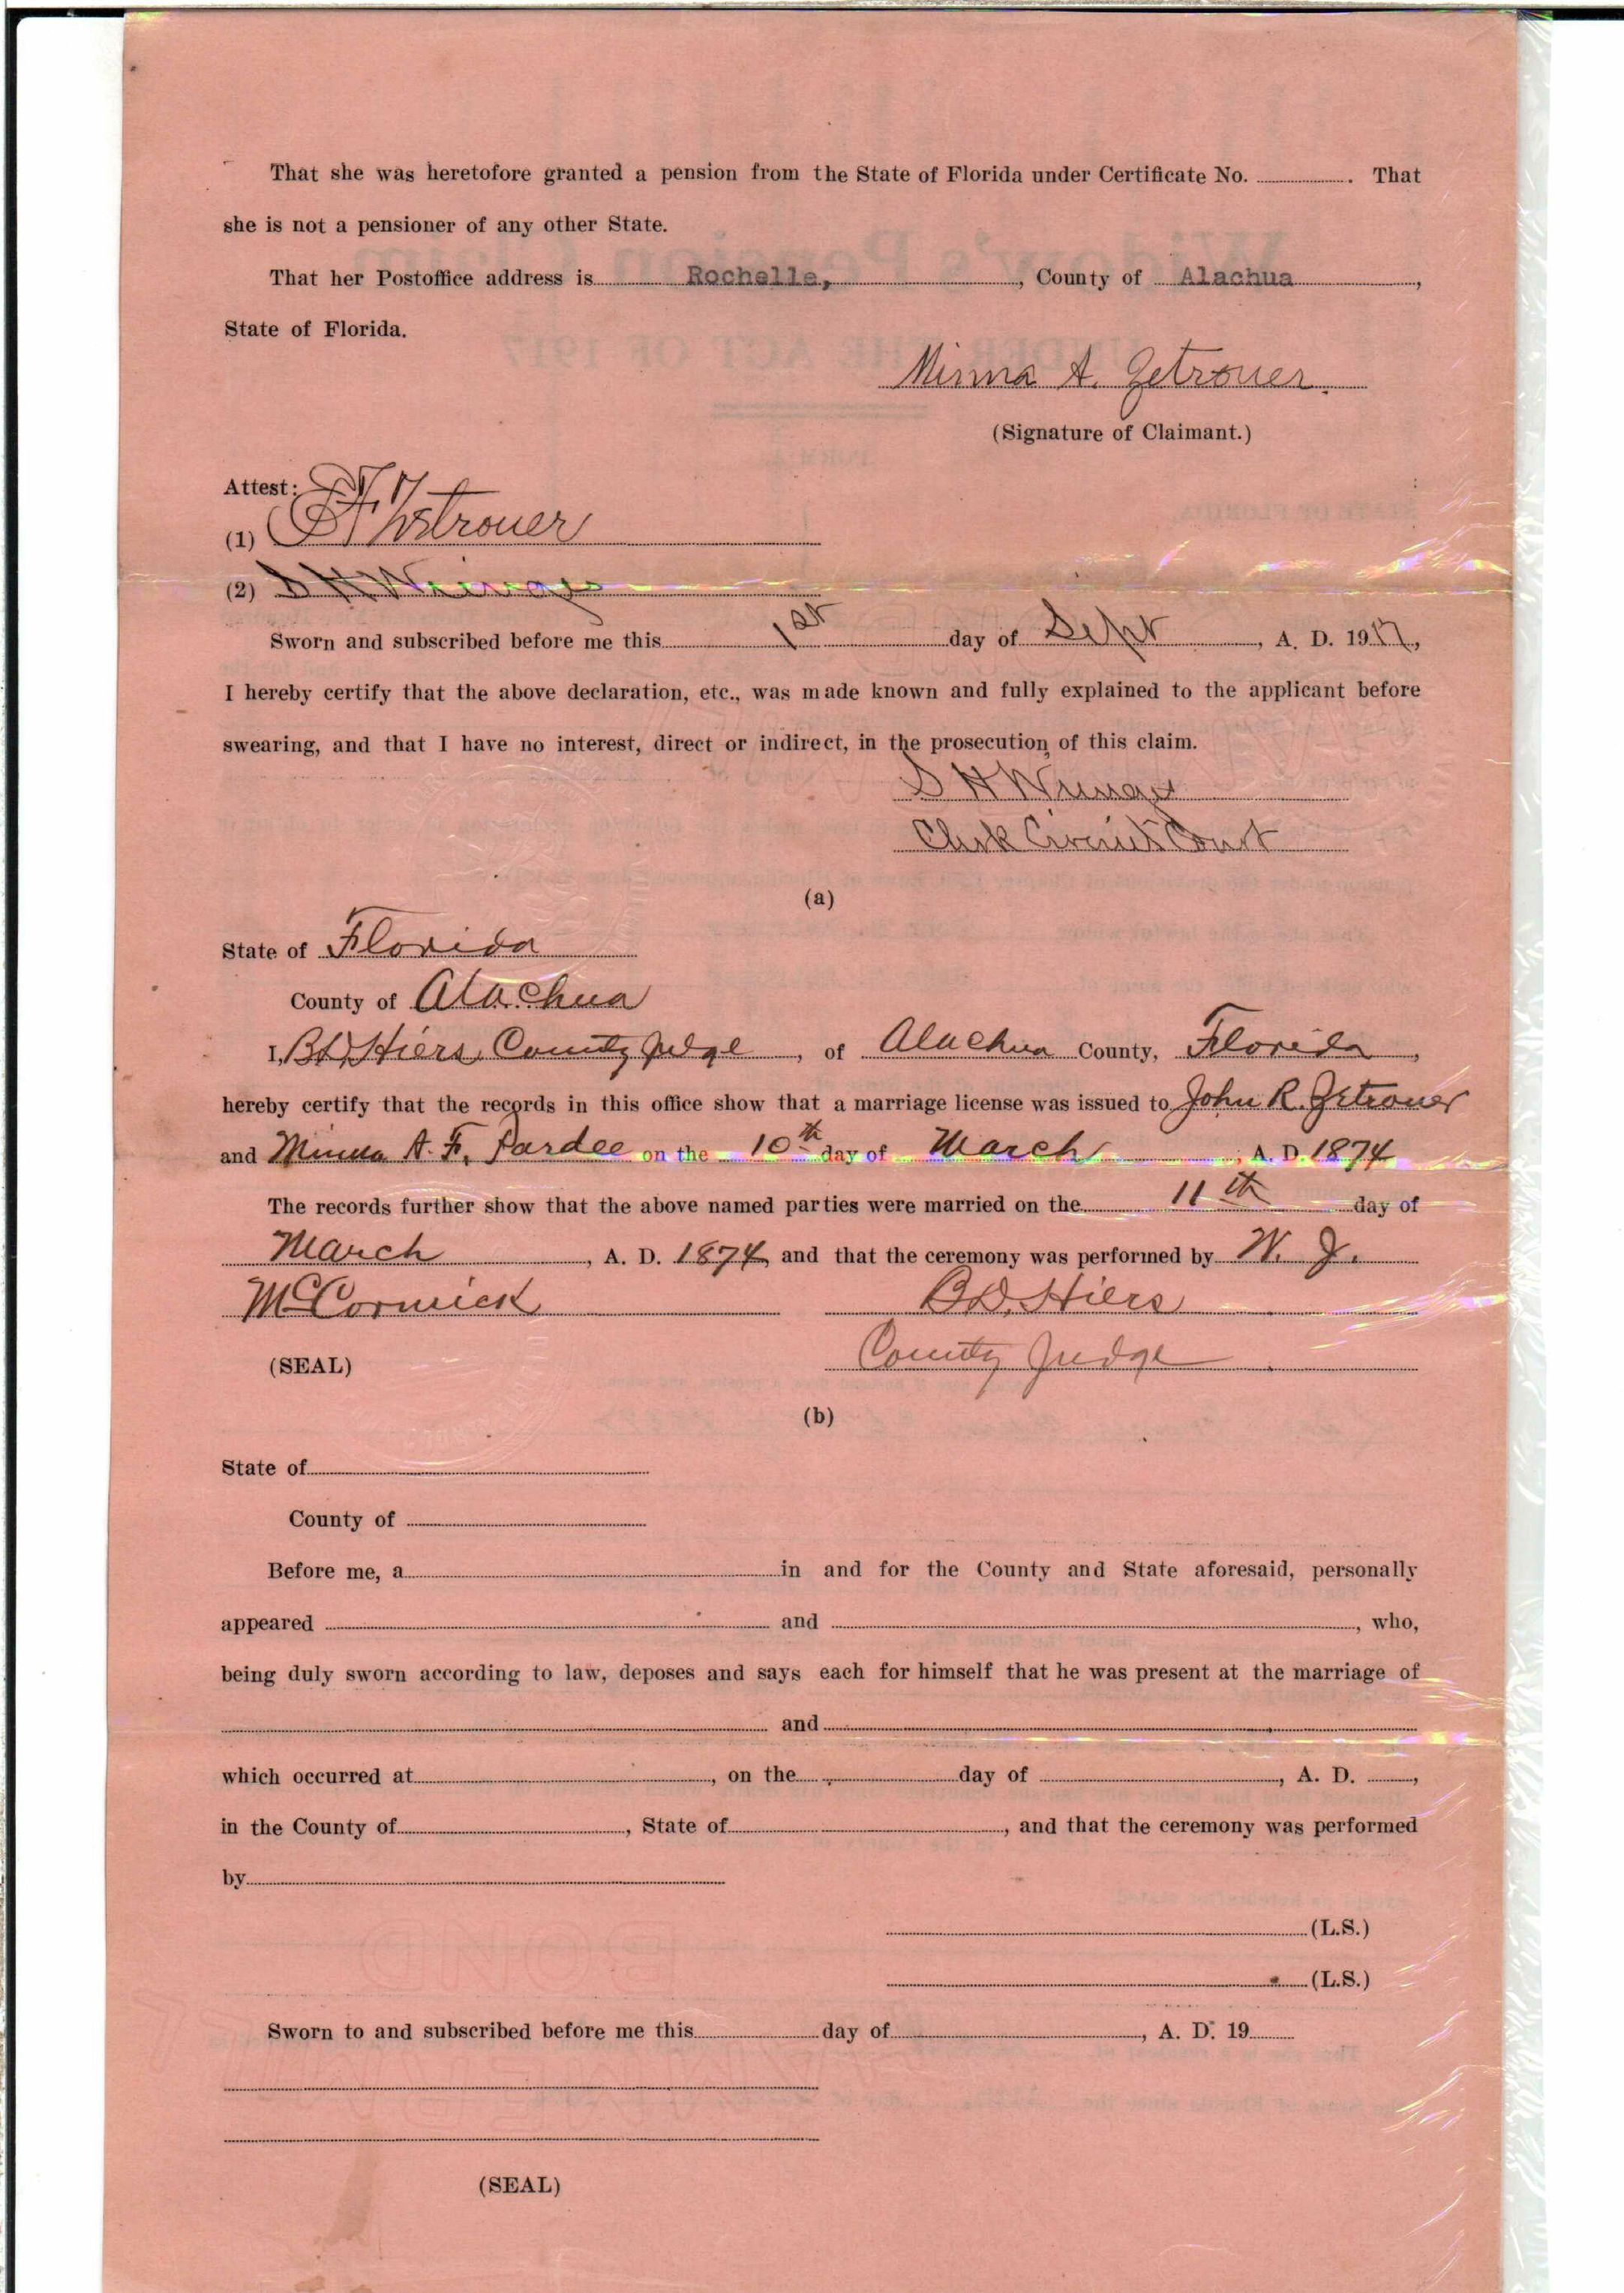 That she was heretofore granted a pension from the State of Florida under Certificate No. . That
she is not a pensioner of any other State.
That her Postoffice address is Rochelle, , County of Alachua ,
State of Florida.
Minna A. Zetrouer.
(Signature of Claimant.)
Attest:
(1) Zetrouer
(2) S H Wienges
Sworn and subscribed before me this 1st day of Sept , A. D. 1917,
I hereby certify that the above declaration, etc., was made known and fully explained to the applicant before
swearing, and that I have no interest, direct or indirect, in the prosecution of this claim.
S H Wienges
Clerk Circuit Court
(a)
State of Florida
County of Alachua
I, B.D. Hiers, County Judge , of Alachua County, Florida ,
hereby certify that the records in this office show that a marriage license was issued to John R. Zetrouer
and Minna A. F. Pardee on the 10th day of March , A. D. 1874
The records further show that the above named parties were married on the 11th day of
March , A. D. 1874 and that the ceremony was performed by W. J.
McCormick B.D. Hiers
(SEAL) County Judge
(b)
State of
County of
Before me, a in and for the County and State aforesaid, personally
appeared and , who,
being duly sworn according to law, deposes and says each for himself that he was present at the marriage of
and
which occurred at , on the day of , A. D. ,
in the County of , State of , and that the ceremony was performed
by
(L.S.)
(L.S.)
Sworn to and subscribed before me this day of , A. D. 19
(SEAL)